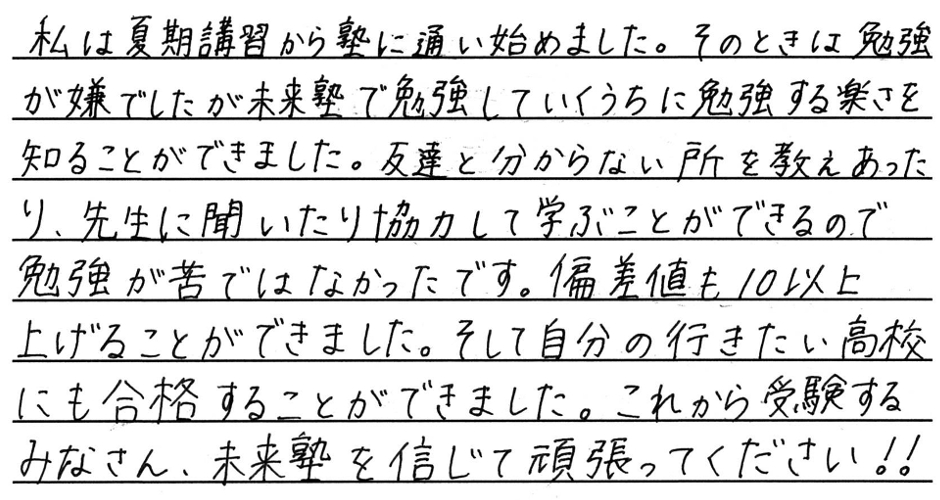 私は夏期講習から塾に通い始めました。そのときは勉強
が嫌でしたが未来塾で勉強していくうちに勉強する楽さを
知ることができました。友達と分からない所を教えあった
り、先生に聞いたり協力して学ぶことができるので
勉強が苦ではなかったです。偏差値も10以上
上げることができました。そして自分の行きたい高校
にも合格することができました。これから受験する
みなさん、未来塾を信じて頑張ってください!!